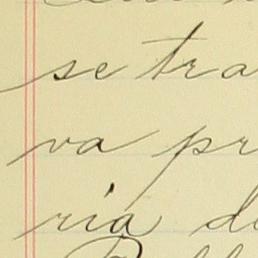 se tra
va pr
ria de